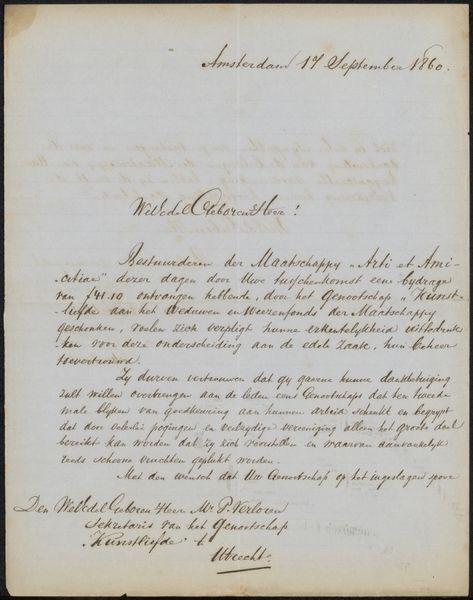 Amsterdam 17 September 1860.
WelEdel Geboren Heer!
Bestuurderen der Maatschappy "Arti et Ami-
citiae" dezer dagen door Uwe tusschenkomst eene bydrage
van f41.10 ontvangen hebbende, door het Genootschap "Kunst-
liefde aan het Weduwen en Weezenfonds" der Maatschappy
geschonken, voelen zich verpligt hunne erkentelykheid uittedruk-
ken voor deze onderscheiding aan de edele zaak, hun beheer
toevertrouwd.
Zy durven vertrouwen dat gy gaarne hunne dankbetuiging
zult willen overbrengen aan de leden eens Genootschaps dat ten tweede
male blyken van goedkeuring aan hunnen arbeid schenkt en begrypt
dat door velerlei pogingen en veelzydige vereeniging alleen het groote doel
bereikt kan worden dat zy zich voorstellen en waarvan aanvankelyk
reeds schoone vruchten geplukt worden.
Met den wensch dat Uw Genootschap op het ingeslagen spoor
Den WelEdel Geboren Heer Mr P. Verloren
Sekretaris van het Genootschap
"Kunstliefde" t.
Utrecht.